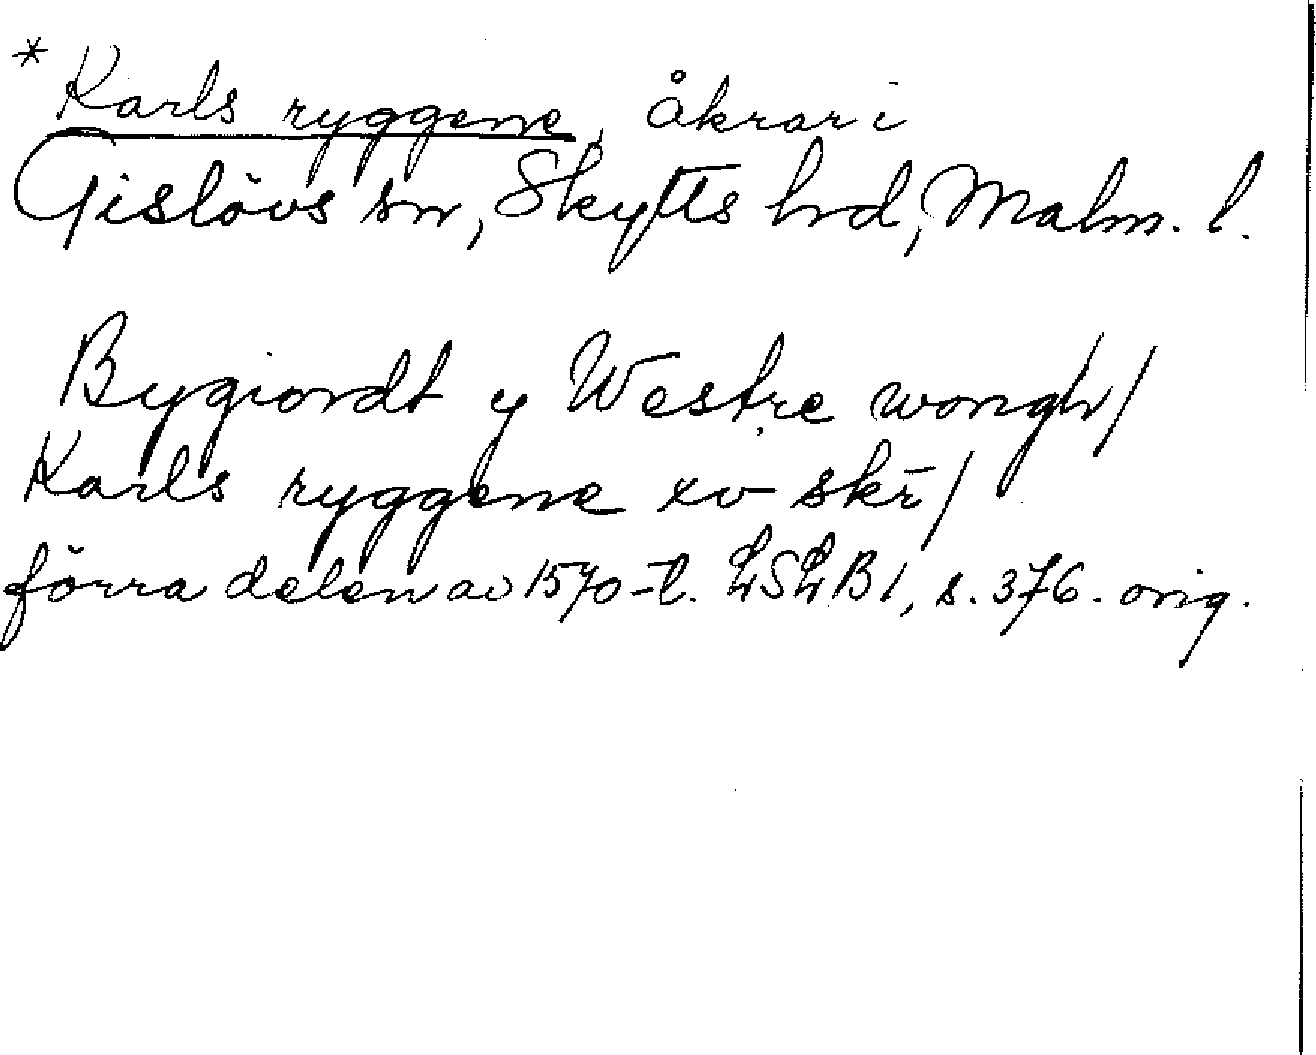 * Karls ryggene, åkrar i
Gislövs sn, Skytts hrd, Malm. l.
Bygiordt y Westre wongh/
Karls ryggene xv skr̄/
förra delen av 1570-t. LSLB1, s. 376. orig.